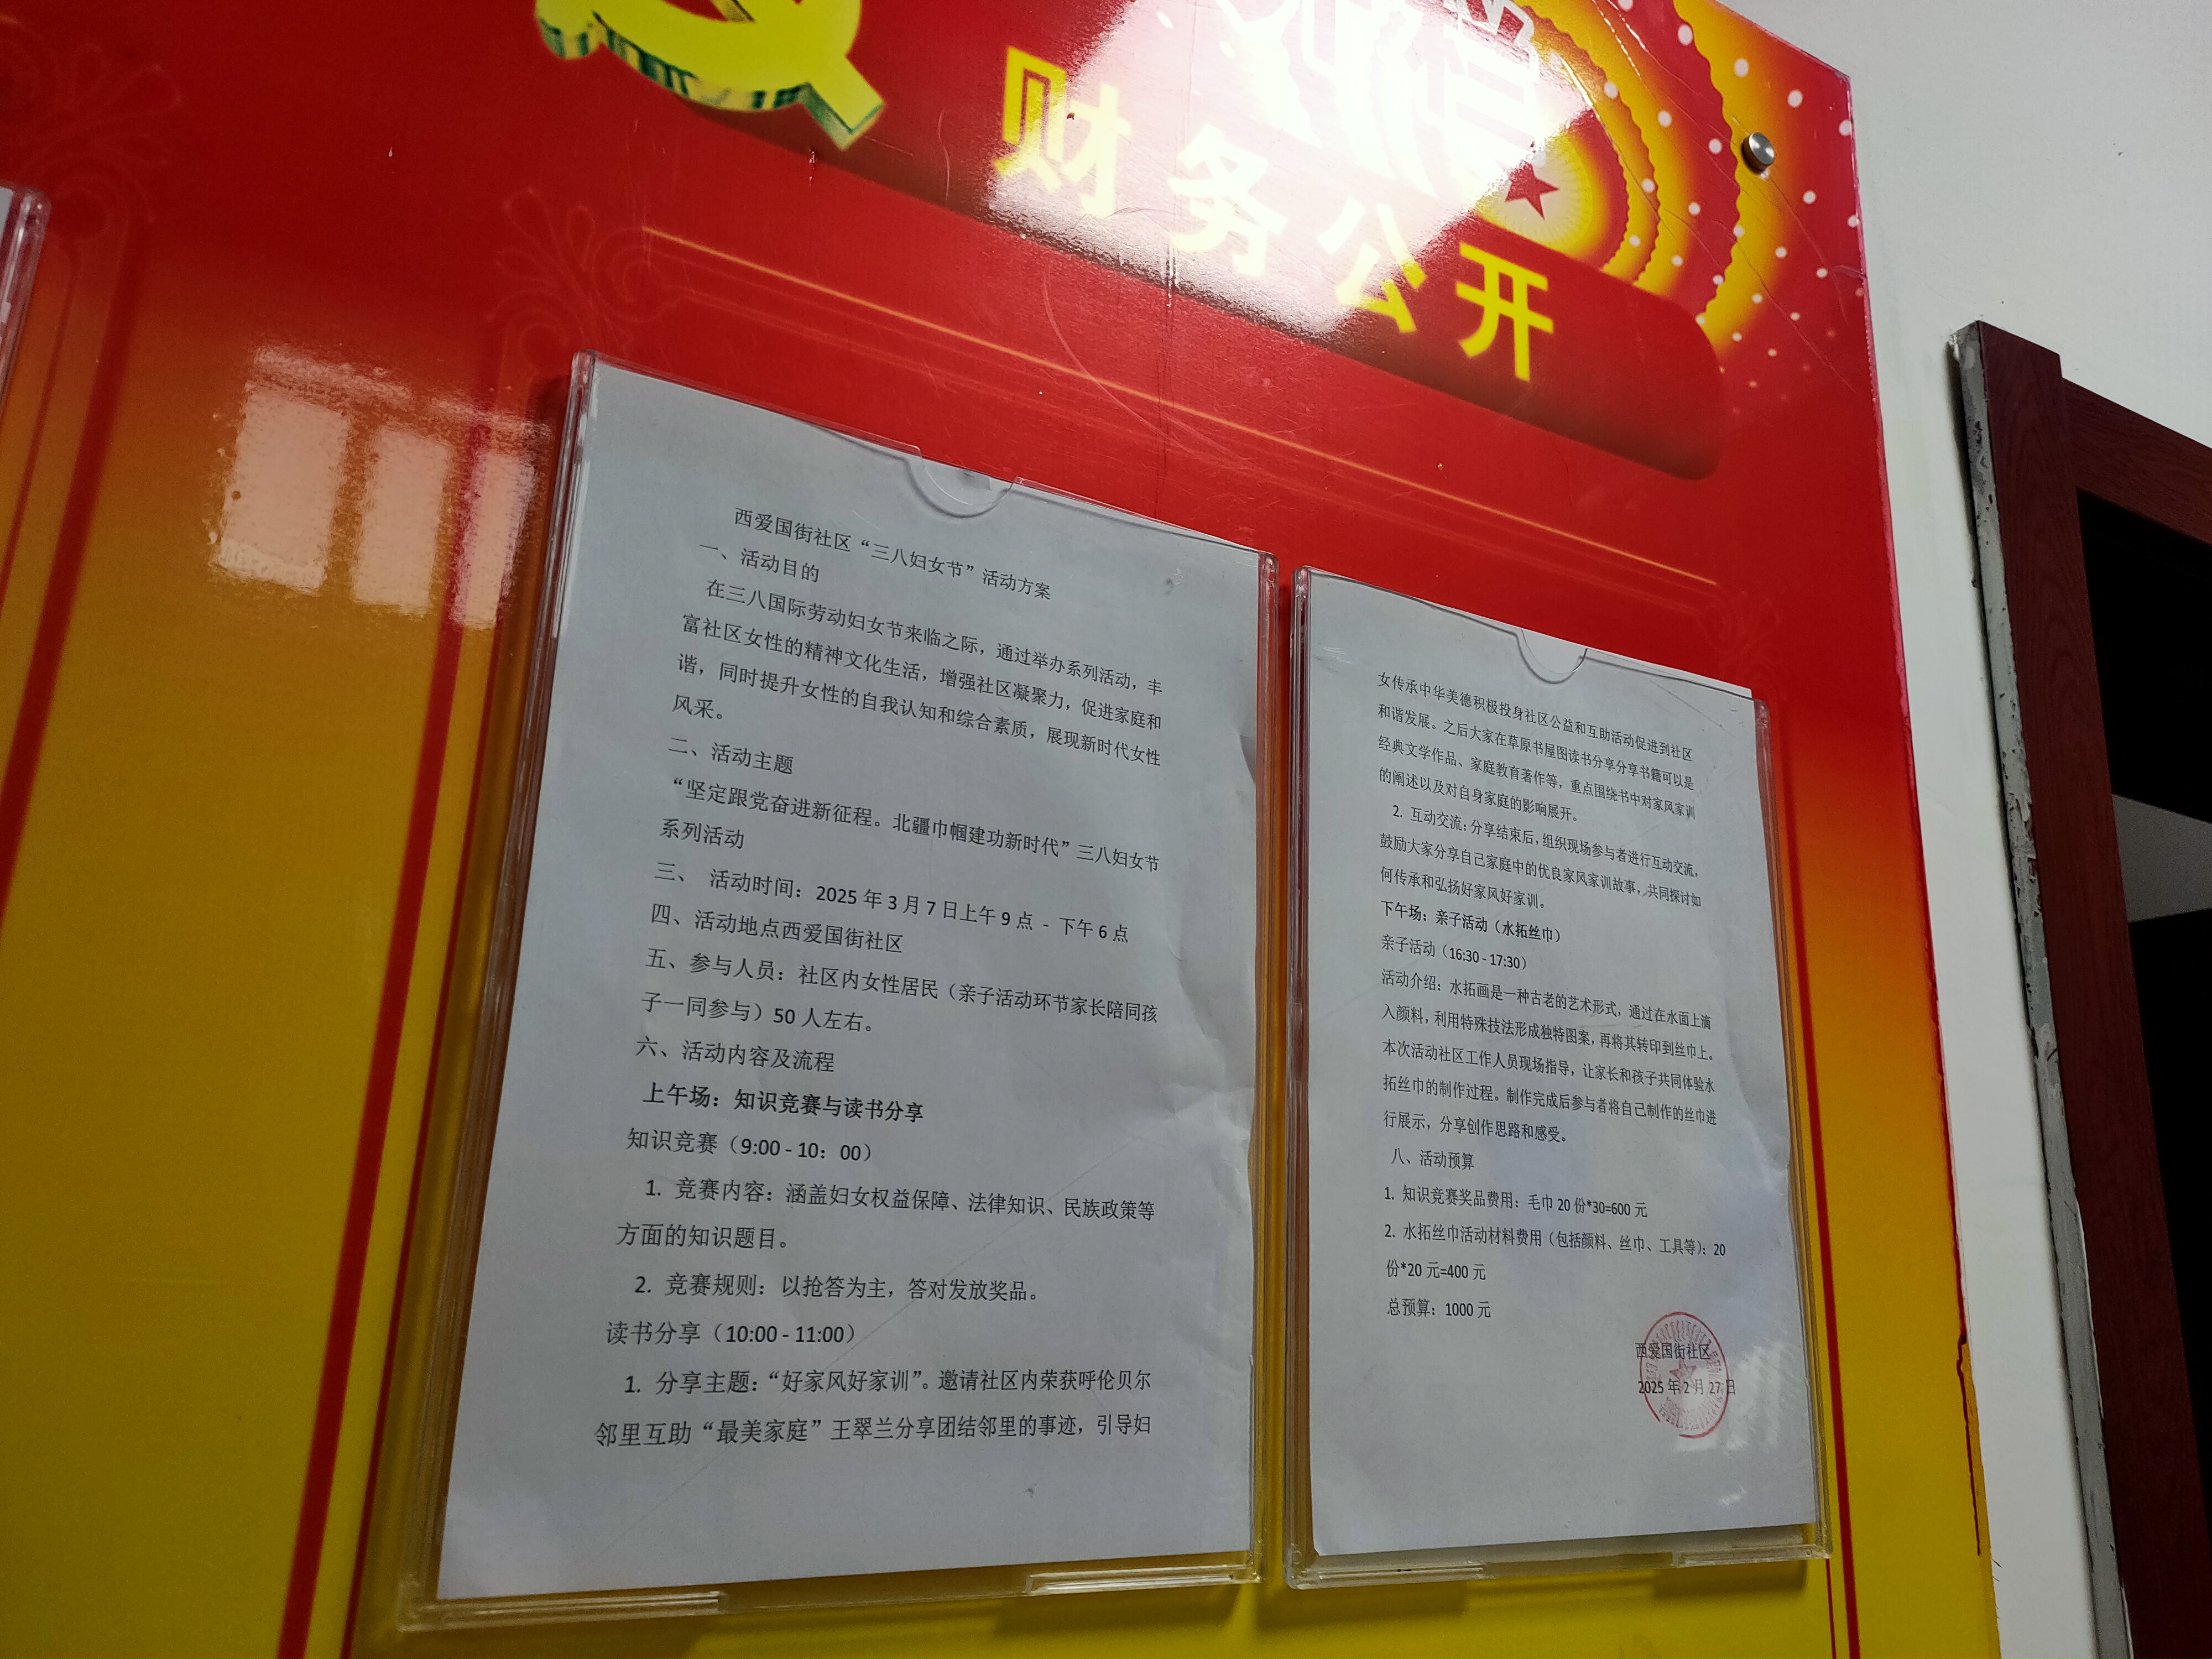 财务公开
西爱国街社区“三八妇女节”活动方案
一、活动目的
在三八国际劳动妇女节来临之际，通过举办系列活动，丰
富社区女性的精神文化生活，增强社区凝聚力，促进家庭和
谐，同时提升女性的自我认知和综合素质，展现新时代女性
风采。
二、活动主题
“坚定跟党奋进新征程。北疆巾帼建功新时代”三八妇女节
系列活动
三、 活动时间：2025 年 3 月 7 日上午 9 点 - 下午 6 点
四、活动地点西爱国街社区
五、参与人员：社区内女性居民（亲子活动环节家长陪同孩
子一同参与）50 人左右。
六、活动内容及流程
上午场：知识竞赛与读书分享
知识竞赛（9:00 - 10：00）
1. 竞赛内容：涵盖妇女权益保障、法律知识、民族政策等
方面的知识题目。
2. 竞赛规则：以抢答为主，答对发放奖品。
读书分享（10:00 - 11:00）
1. 分享主题：“好家风好家训”。邀请社区内荣获呼伦贝尔
邻里互助“最美家庭”王翠兰分享团结邻里的事迹，引导妇
女传承中华美德积极投身社区公益和互助活动促进到社区
和谐发展。之后大家在草原书屋图读书分享分享书籍可以是
经典文学作品、家庭教育著作等，重点围绕书中对家风家训
的阐述以及对自身家庭的影响展开。
2. 互动交流：分享结束后，组织现场参与者进行互动交流，
鼓励大家分享自己家庭中的优良家风家训故事，共同探讨如
何传承和弘扬好家风好家训。
下午场：亲子活动（水拓丝巾）
亲子活动（16:30 - 17:30）
活动介绍：水拓画是一种古老的艺术形式，通过在水面上滴
入颜料，利用特殊技法形成独特图案，再将其转印到丝巾上。
本次活动社区工作人员现场指导，让家长和孩子共同体验水
拓丝巾的制作过程。制作完成后参与者将自己制作的丝巾进
行展示，分享创作思路和感受。
八、活动预算
1. 知识竞赛奖品费用：毛巾 20 份*30=600 元
2. 水拓丝巾活动材料费用（包括颜料、丝巾、工具等）：20
份*20 元=400 元
总预算：1000 元
西爱国街社区
2025 年 2 月 27 日